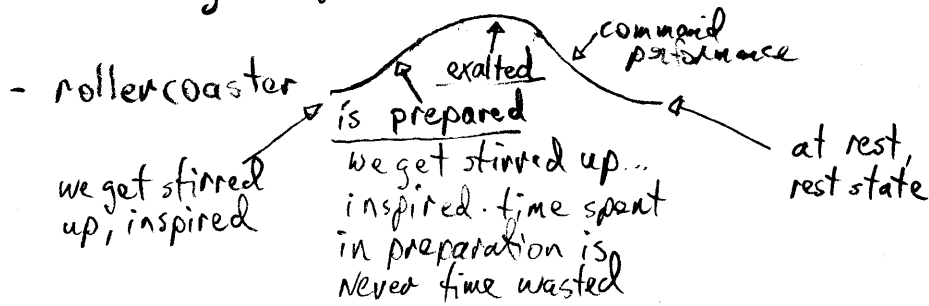 command
performance
exalted
- rollercoaster
is prepared
we get stirred
up, inspired
we get stirred up...
inspired. time spent
in preparation is
Never time wasted
at rest,
rest state